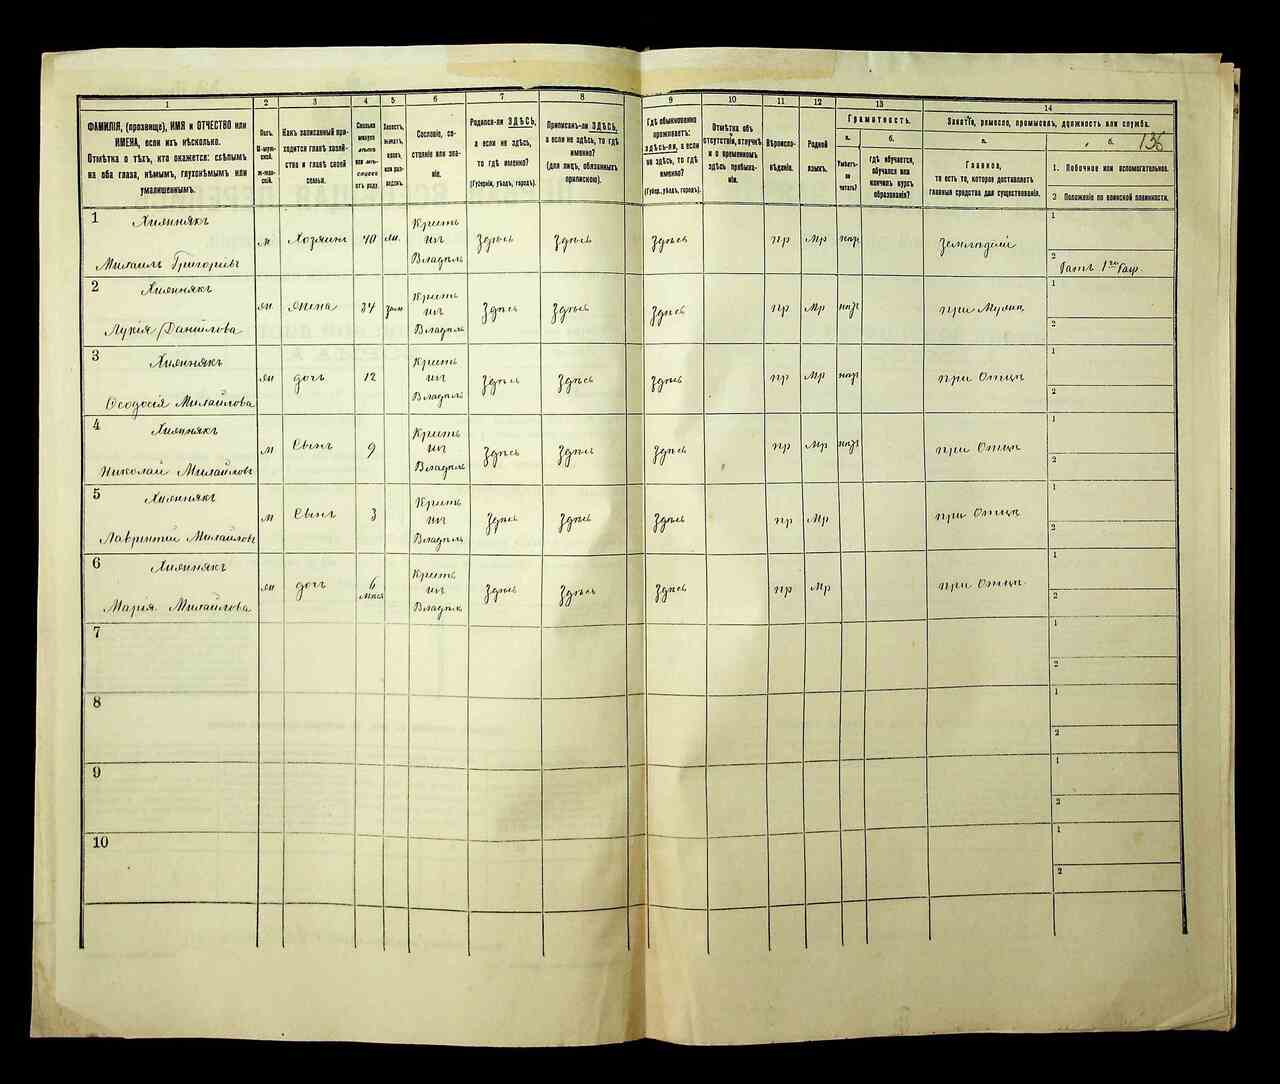 1 2 3 4 5 6 7 8 9 10 11 12 13 14
ФАМИЛІЯ, (прозвище), ИМЯ и ОТЧЕСТВО или
ИМЕНА, если ихъ нѣсколько.
Отмѣтка о тѣхъ, кто окажется: слѣпымъ
на оба глаза, нѣмымъ, глухонѣмымъ или
умалишеннымъ.
Полъ.
М-мужской.
ж-женской.
Какъ записанный приходится главѣ хозяйства и главѣ своей
семьи.
Сколько
минуло
лѣтъ
или мѣсяцевъ
отъ роду.
Холостъ,
женатъ,
вдовъ,
или разведенъ.
Сословіе, состояніе или званіе.
Родился-ли ЗДѢСЬ,
а если не здѣсь,
то гдѣ именно?
(Губернія, уѣздъ, городъ).
Приписанъ-ли ЗДѢСЬ,
а если не здѣсь, то гдѣ
именно?
(для лицъ, обязанныхъ
припискою).
Гдѣ обыкновенно
проживаетъ:
здѣсь-ли, а если
не здѣсь, то гдѣ
именно?
(Губер., уѣздъ, городъ).
Отмѣтка объ
отсутствіи, отлучкѣ
и о временномъ
здѣсь пребываніи.
Вѣроисповѣданіе.
Родной
языкъ.
Грамотность.
а.
Умѣетъ-ли
читать?
б.
гдѣ обучается,
обучался или
кончилъ курсъ
образованія?
Занятіе, ремесло, промыселъ, должность или служба.
а.
Главное,
то есть то, которое доставляетъ
главныя средства для существованія.
б.
136
1. Побочное или вспомогательное.
2 Положеніе по воинской повинности.
1
Хижнякъ
Михаилъ Григорьевъ
м Хозяинъ 40 жн.
Крестьинъ
Владѣль
Здѣсь Здѣсь Здѣсь пр Мр нгр землѣдѣліе
1
2
2
Хижнякъ
Лукія Данилова
ж жена 34 зам
Крестьинъ
Владѣль
Здѣсь Здѣсь Здѣсь пр Мр нгр при Мужѣ
1
2
3
Хижнякъ
Ѳеодосія Михайлова
ж дочь 12
Крестьинъ
Владѣль
Здѣсь Здѣсь Здѣсь пр Мр нгр при Отцѣ
1
2
4
Хижнякъ
Николай Михайловъ
м Сынъ 9
Крестьинъ
Владѣль
Здѣсь Здѣсь Здѣсь пр Мр нгр при Отцѣ
1
2
5
Хижнякъ
Лаврентій Михайловъ
м Сынъ 3
Крестьинъ
Владѣль
Здѣсь Здѣсь Здѣсь пр Мр при Отцѣ
1
2
6
Хижнякъ
Марія Михайлова
ж дочь 6 мѣся
Крестьинъ
Владѣль
Здѣсь Здѣсь Здѣсь пр Мр при Отцѣ
1
2
7
1
2
8
1
2
9
1
2
10
1
2